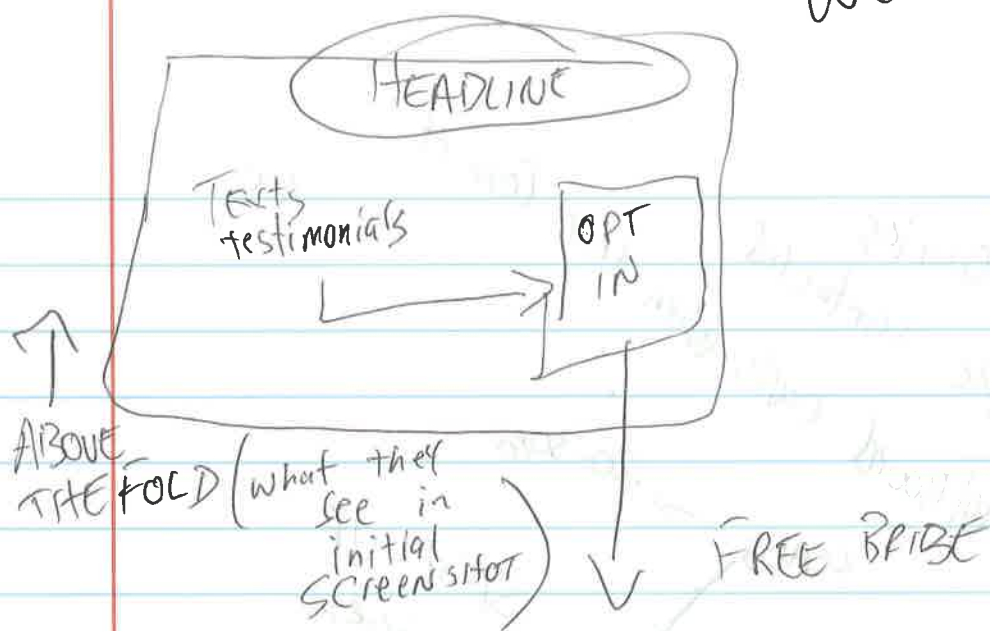 HEADLINE
Texts
testimonials
OPT
IN
ABOVE
THE FOLD (what they
see in
initial
SCREENSHOT)
FREE BRIBE